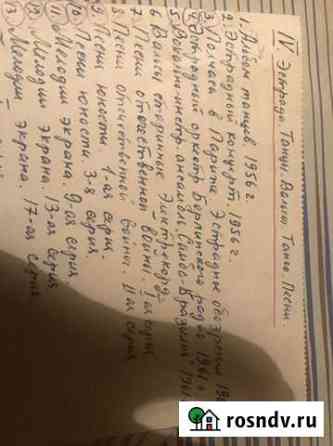 IV Эстрада. Танцы. Вальсы. Танго. Песни.
1. Альбом танцев 1956 г.
2. Эстрадный концерт. 1956 г.
3. Полчаса в Париже. Эстрадные обозрения 19
4. Эстрадный оркестр Берлинского радио 1961 г.
5. Вокально-инстр. ансамбль Самбо-Бразилия 1961
6 Вальсы старинные Электрекорд
7 Песни отечественной войны. I ая серия
8 Песни отечественной войны. II ая серия
9. Песни юности 1-ая серия.
10. Песни юности 3-я серия
11. Мелодии экрана. 9 ая серия
12. Мелодии экрана. 13-ая серия
13 Мелодии экрана. 17-ая серия
rosndv.ru